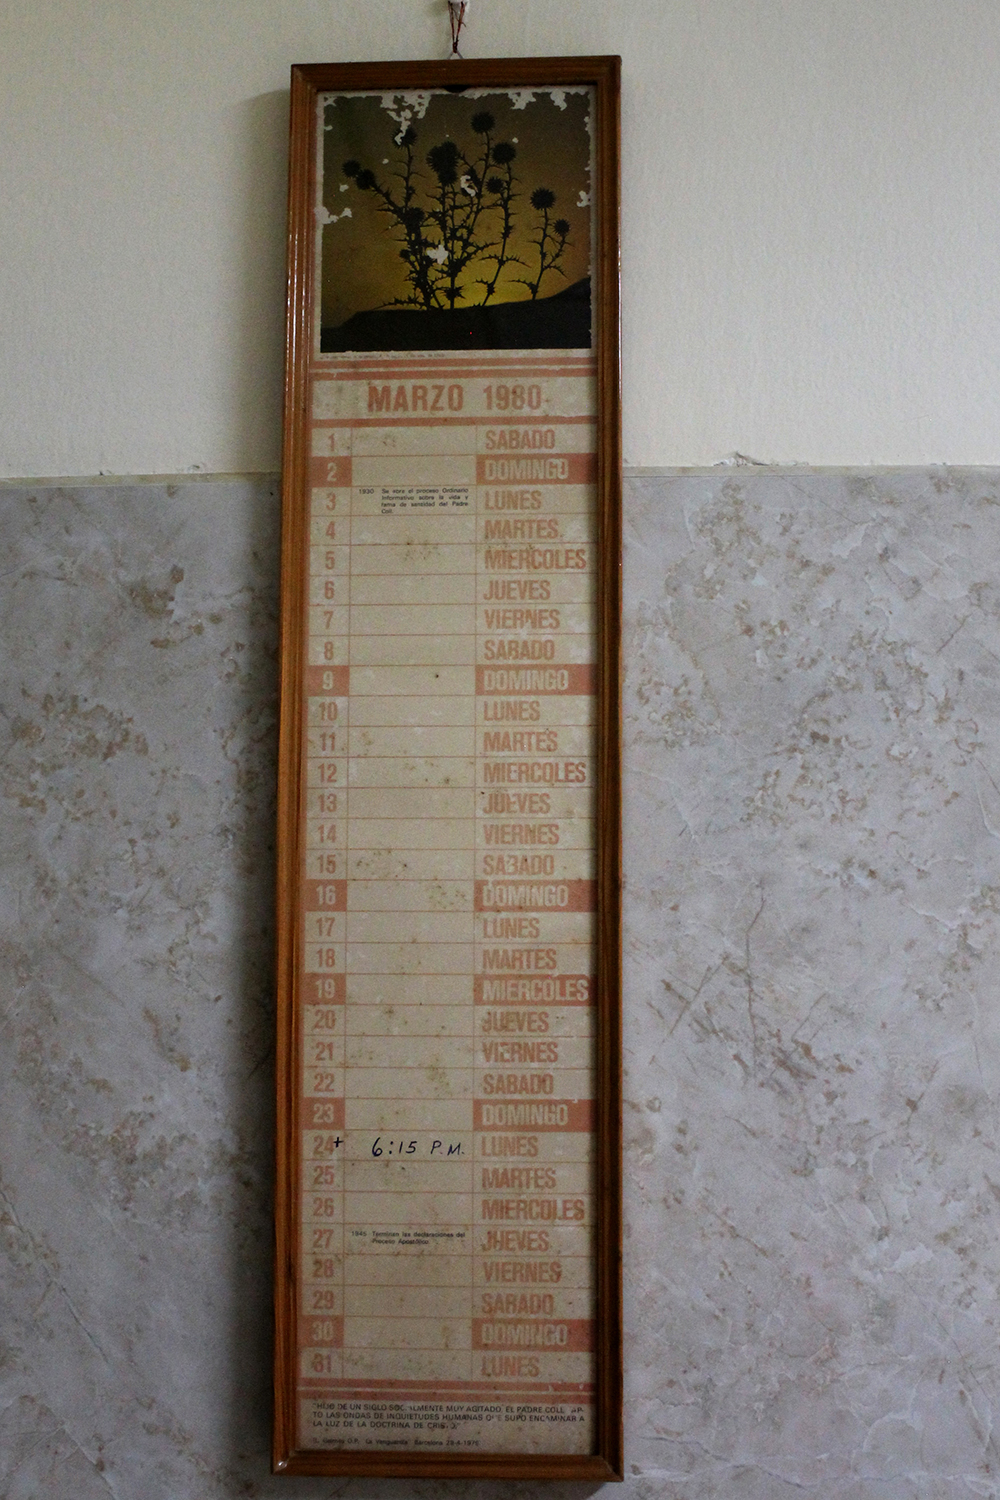 MARZO 1980
1 SABADO
2 DOMINGO
3 1930 Se abre el proceso Ordinario LUNES
informativo sobre la vida y
fama de santidad del Padre
Coll.
4 MARTES
5 MIERCOLES
6 JUEVES
7 VIERNES
8 SABADO
9 DOMINGO
10 LUNES
11 MARTES
12 MIERCOLES
13 JUEVES
14 VIERNES
15 SABADO
16 DOMINGO
17 LUNES
18 MARTES
19 MIERCOLES
20 JUEVES
21 VIERNES
22 SABADO
23 DOMINGO
24 + 6:15 P.M. LUNES
25 MARTES
26 MIERCOLES
27 1945 Terminan las declaraciones del JUEVES
Proceso Apostólico.
28 VIERNES
29 SABADO
30 DOMINGO
31 LUNES
"HIJO DE UN SIGLO SOCIALMENTE MUY AGITADO, EL PADRE COLL
LAS ONDAS DE INQUIETUDES HUMANAS QUE SUPO ENCAMINAR A
LA LUZ DE LA DOCTRINA DE
O.P. La Vanguardia Barcelona